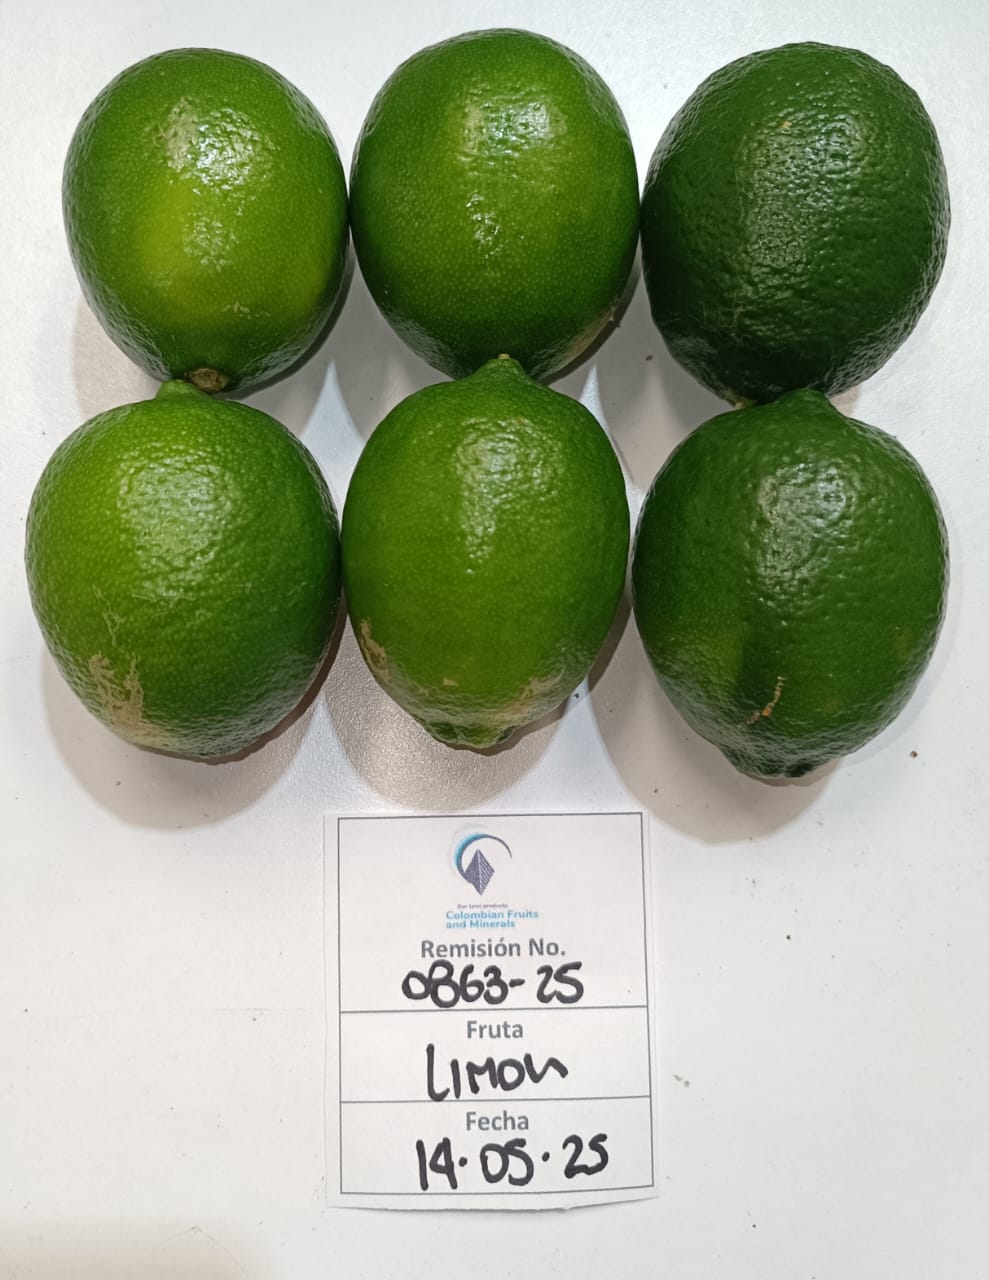 Our best products
Colombian Fruits
and Minerals
Remisión No.
0863-25
Fruta
LIMON
Fecha
14.05.25